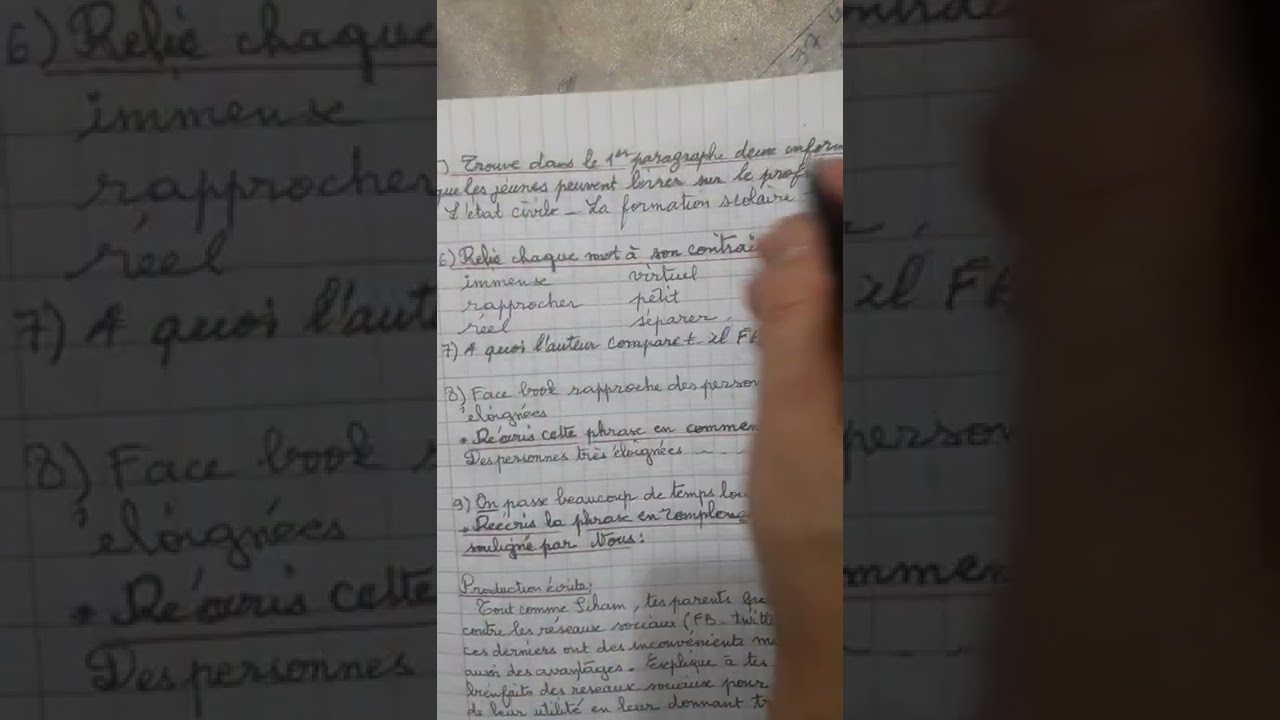 ) Trouve dans le 1er paragraphe deux inform
que les jeunes peuvent livrer sur le prof
L'état civile - La formation scolaire
6) Relie chaque mot à son contrai
immense virtuel
rapprocher petit
réel séparer.
7) A quoi l'auteur compare t-il FB
8) Face book rapproche des person
éloignées
* Réécris cette phrase en commen
Des personnes très éloignées
9) On passe beaucoup de temps
* Réécris la phrase en remplaç
souligné par Nous:
Production écrite:
Tout comme Siham, tes parents
contre les réseaux sociaux (FB - twitte
ces derniers ont des inconvénients m
aussi des avantages. Explique à tes
bienfaits des reseaux sociaux pour
de leur utilité en leur donnant tr